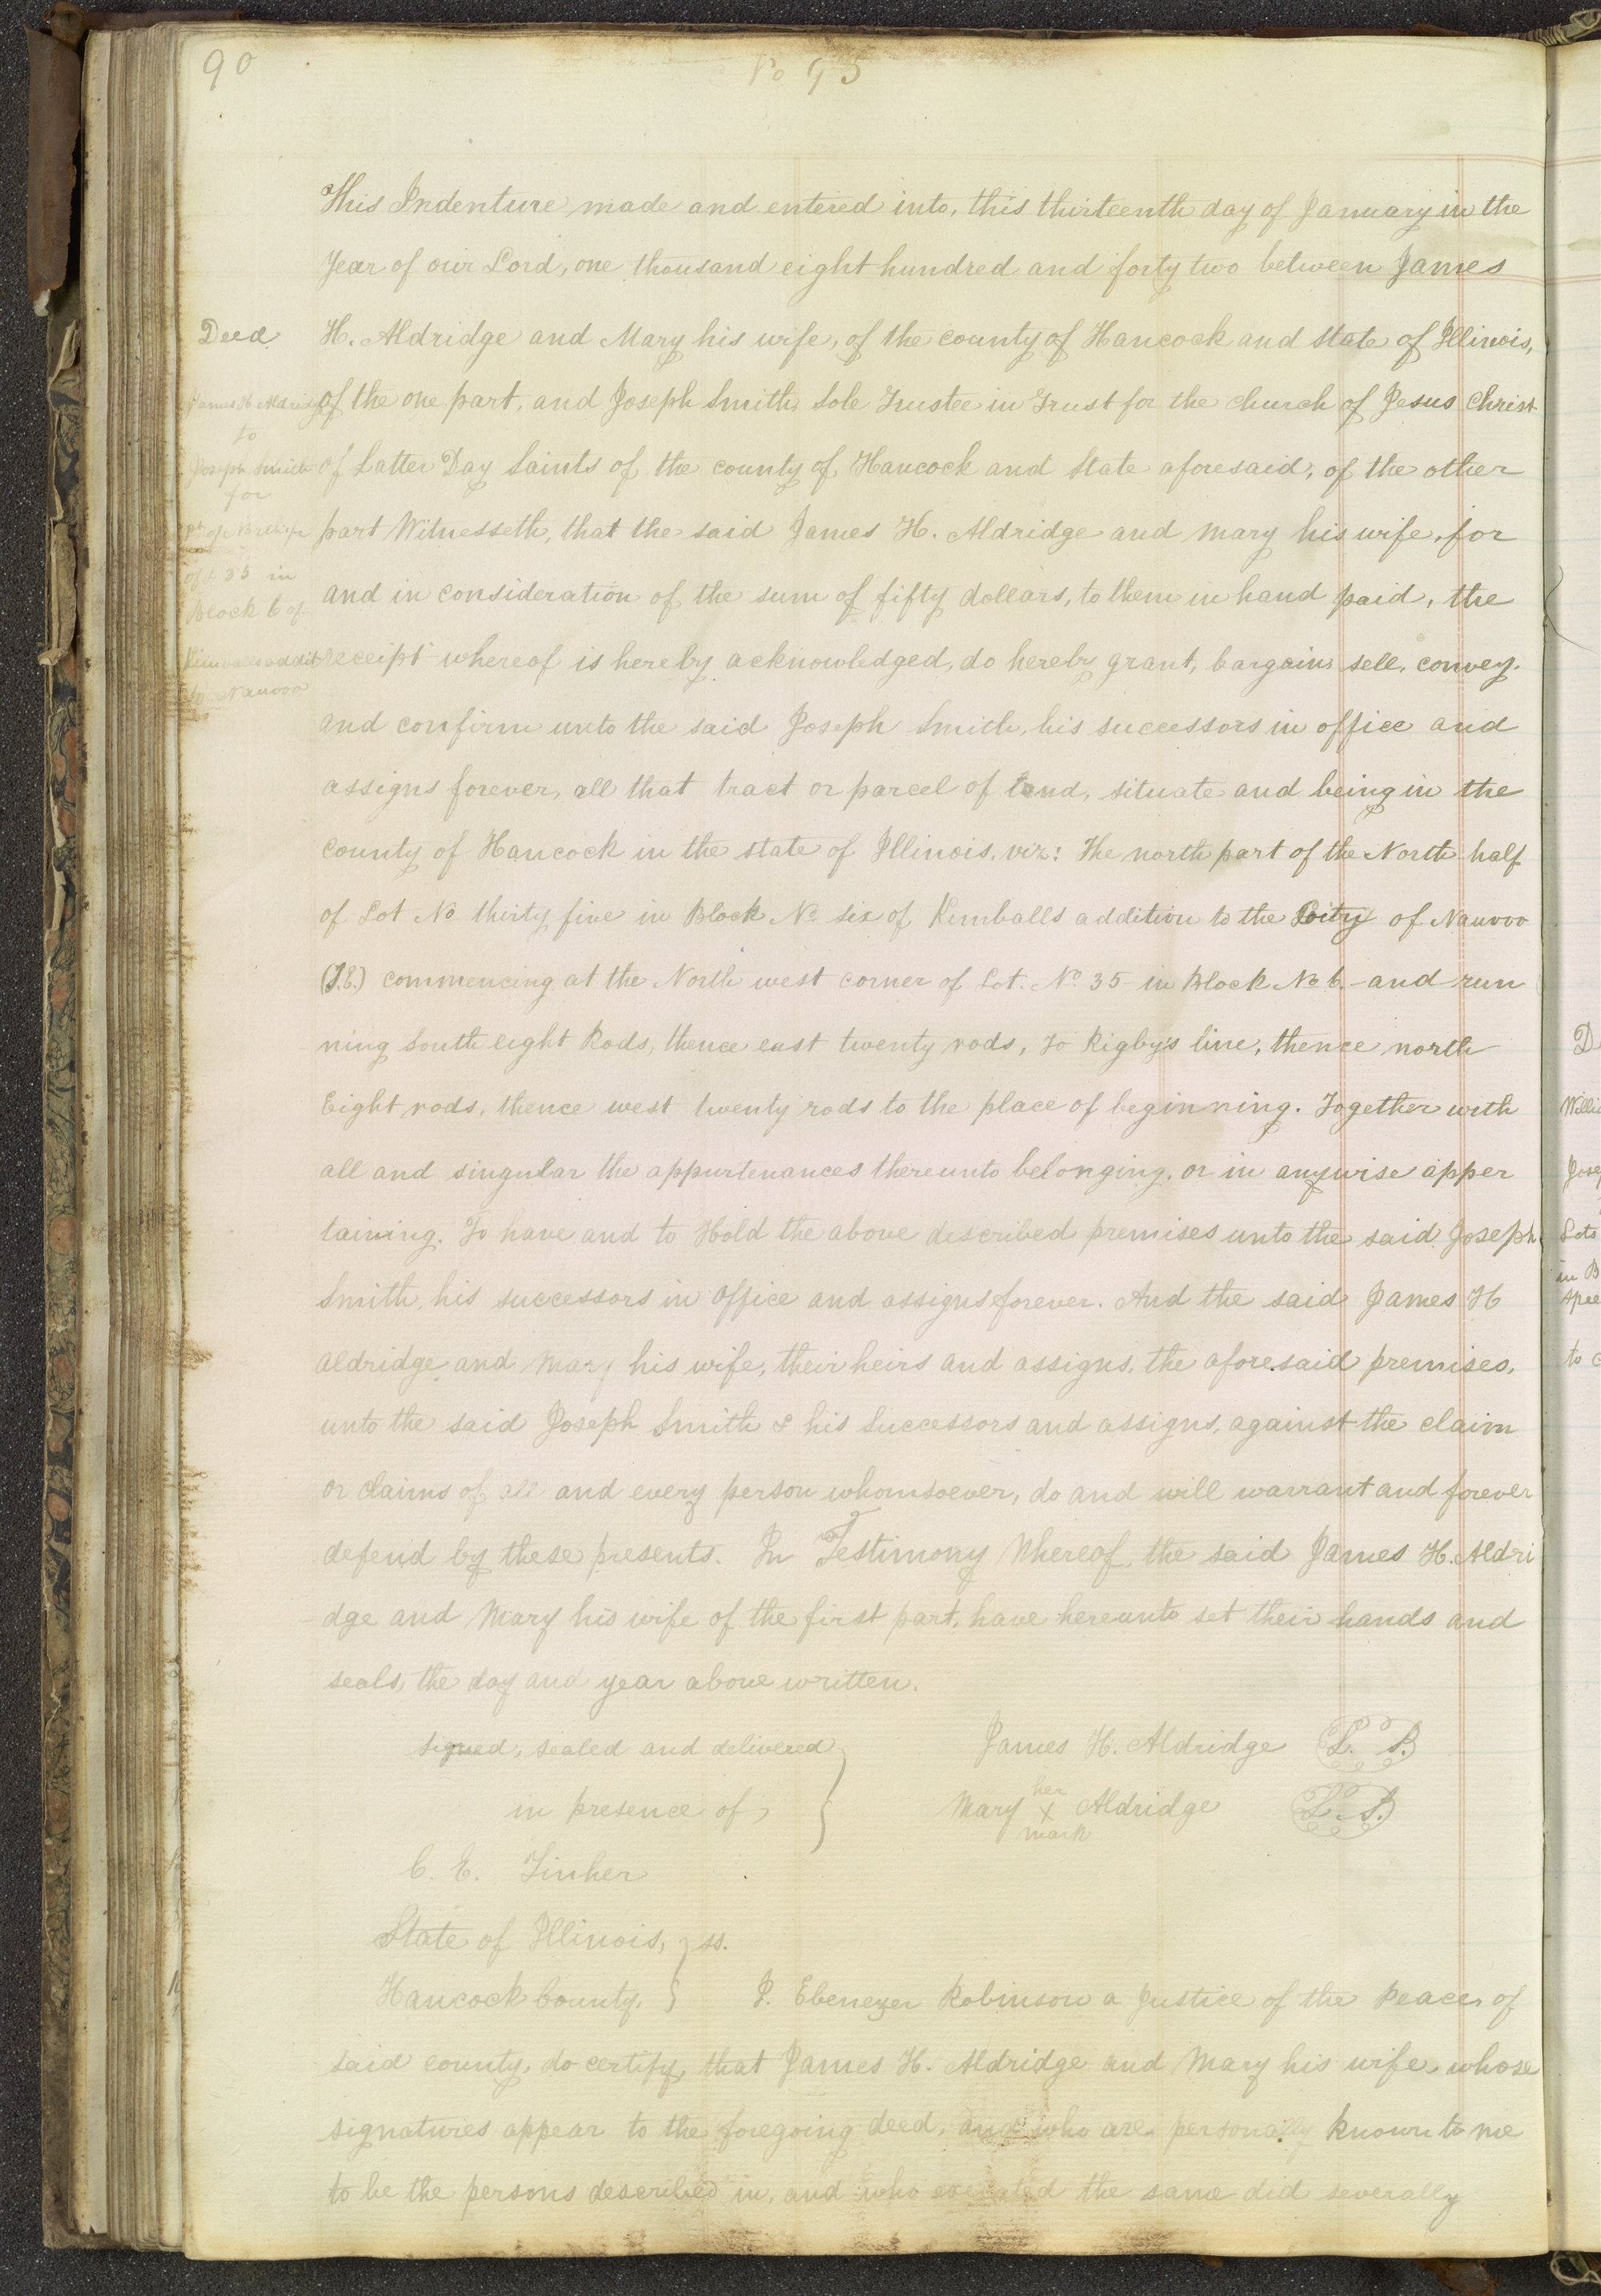 90
No 95
This Indenture made and entered into, this thirteenth day of January in the
Year of our Lord, one thousand eight hundred and forty two between James
Deed
H. Aldridge and Mary his wife, of the county of Hancock and State of Illinois,
James H Aldridge
of the one part, and Joseph Smith, Sole Trustee in Trust for the church of Jesus Christ
to
Joseph Smith
of Latter Day Saints of the county of Hancock and State aforesaid, of the other
for
part Witnesseth, that the said James H. Aldridge and Mary his wife, for
of L 35 in
and in consideration of the sum of fifty dollars, to them in hand paid, the
Block 6 of
Kimballs addit
receipt whereof is hereby acknowledged, do hereby grant, bargain, sell, convey.
to Nauvoo
and confirm unto the said Joseph Smith, his successors in office and
assigns forever, all that tract or parcel of land, situate and being in the
county of Hancock in the state of Illinois, viz: The north part of the North half
of Lot No thirty five in Block No six of Kimballs addition to the City of Nauvoo
(I.E.) commencing at the North west corner of Lot. No 35 in Block No 6. and run
ning South eight Rods, thence east twenty rods, to Rigby's line, thence north
Eight rods, thence west twenty rods to the place of beginning. Together with
all and singular the appurtenances thereunto belonging. or in anywise apper
taining. To have and to Hold the above described premises unto the said Joseph
Smith, his successors in office and assigns forever. And the said James H
Aldridge and Mary his wife, their heirs and assigns, the aforesaid premises,
unto the said Joseph Smith & his Successors and assigns, against the claim
or claims of all and every person whomsoever, do and will warrant and forever
defend by these presents. In Testimony Whereof, the said James H. Aldri
dge and Mary his wife of the first part, have hereunto set their hands and
seals, the day and year above written.
signed, sealed and delivered James H. Aldridge L. S.
in presence of
her
Mary X Aldridge L. S.
mark
C. E. Tinker
State of Illinois, } ss.
Hancock County, } I. Ebenezer Robinson a Justice of the Peace, of
said county, do certify, that James H. Aldridge and Mary his wife, whose
signatures appear to the foregoing deed, and who are personally known to me
to be the persons described in, and who executed the same did severally
D
Willi
Jose
Lots
in B
to